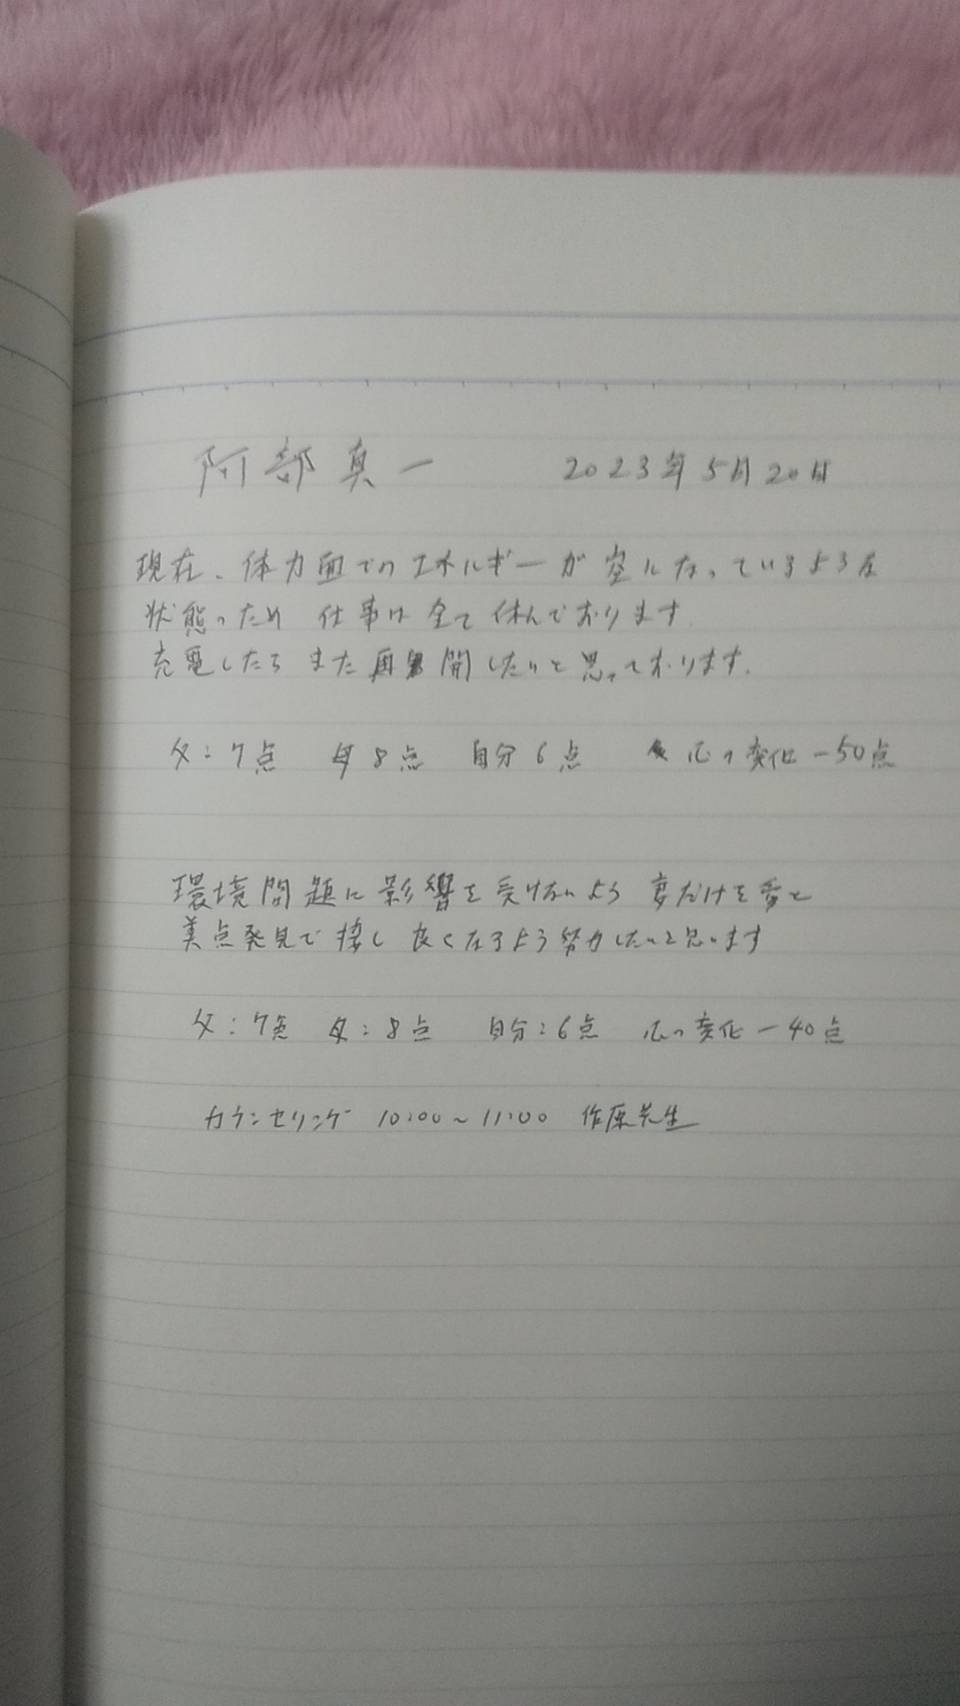 阿部真一 2023年5月20日
現在、体力面でのエネルギーが空になっているような
状態のため 仕事は全て休んでおります.
充電したら また再開したいと思っております.
父:7点 母8点 自分6点 心の変化-50点
環境問題に影響を受けないよう 妻だけを愛と
美点発見で接し 良くなるよう努力したいと思います
父:7点 母:8点 自分:6点 心の変化-40点
カウンセリング 10:00~11:00 作原先生